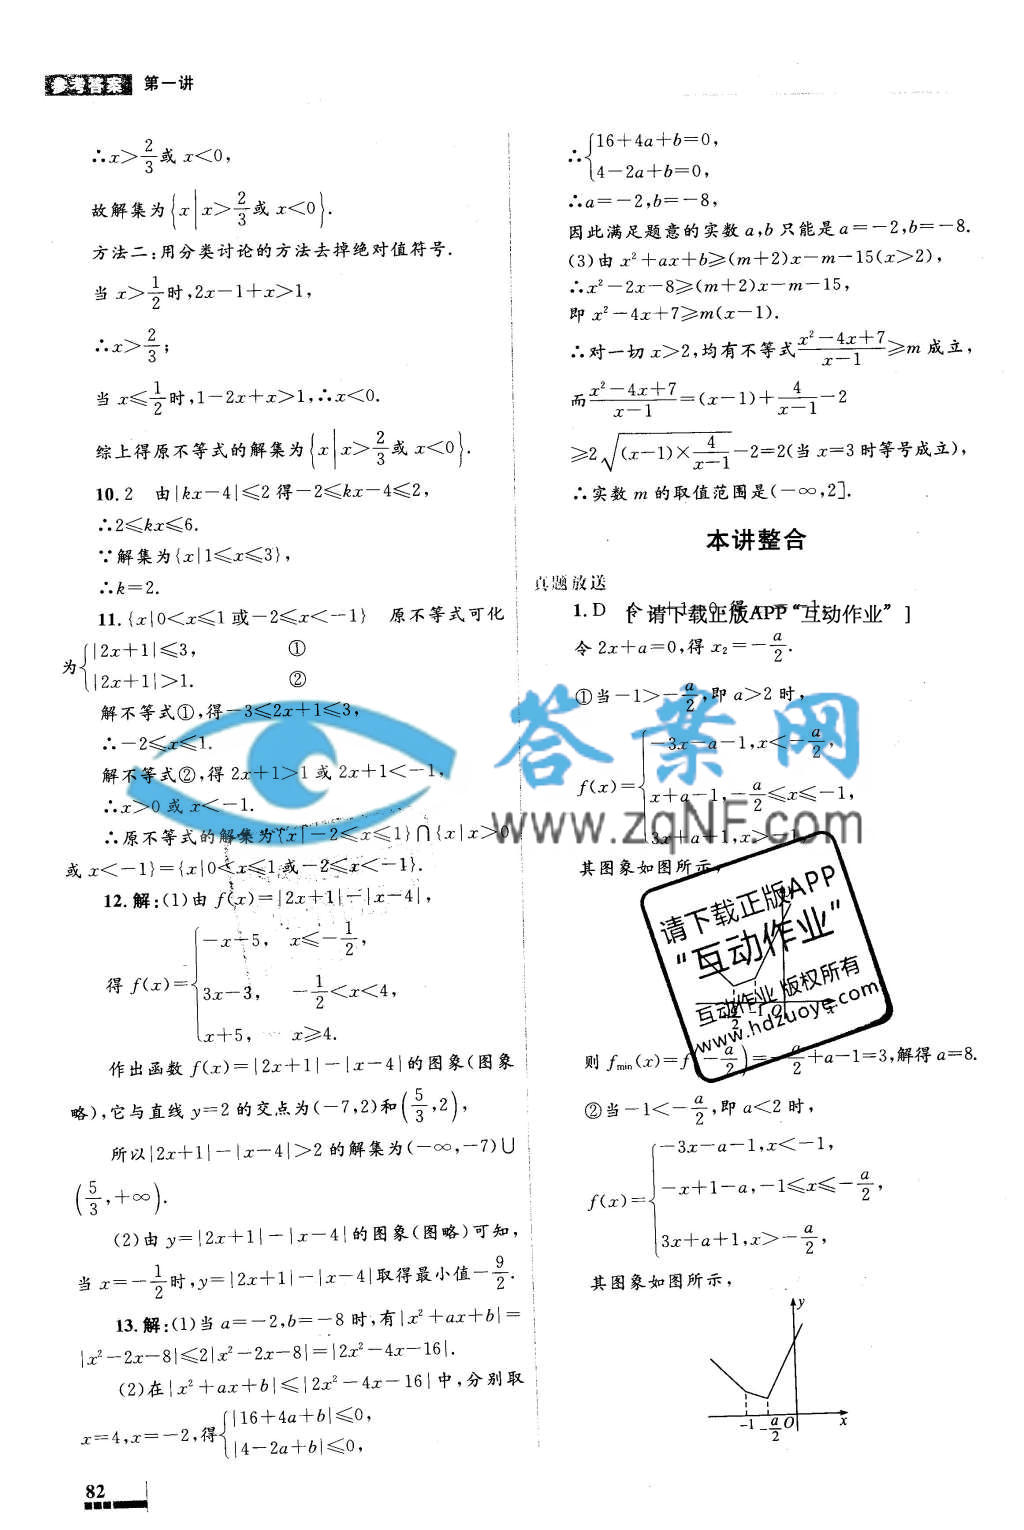 参考答案 第一讲
∴x>2/3或 x<0,
故解集为{x|x>2/3或 x<0}.
方法二:用分类讨论的方法去掉绝对值符号.
当 x>1/2时,2x-1+x>1,
∴x>2/3;
当 x≤1/2时,1-2x+x>1,∴x<0.
综上得原不等式的解集为{x|x>2/3或 x<0}.
10. 2 由|kx-4|≤2 得-2≤kx-4≤2,
∴2≤kx≤6.
∵解集为{x|1≤x≤3},
∴k=2.
11. {x|0<x≤1 或-2≤x<-1} 原不等式可化
为{|2x+1|≤3, ①
|2x+1|>1. ②
解不等式①,得-3≤2x+1≤3,
∴-2≤x≤1.
解不等式②,得 2x+1>1 或 2x+1<-1,
∴x>0 或 x<-1.
∴原不等式的解集为{x|-2≤x≤1}∩{x|x>0
或 x<-1}={x|0<x≤1 或-2≤x<-1}.
12. 解:(1)由 f(x)=|2x+1|-|x-4|,
得 f(x)={-x-5, x≤-1/2,
3x-3, -1/2<x<4,
x+5, x≥4.
作出函数 f(x)=|2x+1|-|x-4|的图象(图象
略),它与直线 y=2 的交点为(-7,2)和(5/3,2),
所以|2x+1|-|x-4|>2 的解集为(-∞,-7)∪
(5/3,+∞).
(2)由 y=|2x+1|-|x-4|的图象(图略)可知,
当 x=-1/2时,y=|2x+1|-|x-4|取得最小值-9/2.
13. 解:(1)当 a=-2,b=-8 时,有|x²+ax+b|=
|x²-2x-8|≤2|x²-2x-8|=|2x²-4x-16|.
(2)在|x²+ax+b|≤|2x²-4x-16|中,分别取
x=4,x=-2,得{|16+4a+b|≤0,
|4-2a+b|≤0,
82
∴{16+4a+b=0,
4-2a+b=0,
∴a=-2,b=-8,
因此满足题意的实数 a,b 只能是 a=-2,b=-8.
(3)由 x²+ax+b≥(m+2)x-m-15(x>2),
∴x²-2x-8≥(m+2)x-m-15,
即 x²-4x+7≥m(x-1).
∴对一切 x>2,均有不等式(x²-4x+7)/(x-1)≥m 成立,
而(x²-4x+7)/(x-1)=(x-1)+4/(x-1)-2
≥2√((x-1)×4/(x-1))-2=2(当 x=3 时等号成立),
∴实数 m 的取值范围是(-∞,2].
本讲整合
真题放送
1. D
请下载正版APP“互动作业”]
令 2x+a=0,得 x₂=-a/2.
①当-1>-a/2,即 a>2 时,
f(x)={-3x-a-1,x<-a/2,
x+a-1,-a/2≤x≤-1,
3x+a+1,x>-1,
其图象如图所示,
请下载正版APP
“互动作业”
互动作业 版权所有
www.hdzuoye.com
则 fmin(x)=f(-a/2)=-a/2+a-1=3,解得 a=8.
②当-1<-a/2,即 a<2 时,
f(x)={-3x-a-1,x<-1,
-x+1-a,-1≤x≤-a/2,
3x+a+1,x>-a/2,
其图象如图所示,
y
-1 -a/2 O x
答案网
www.zqNF.com